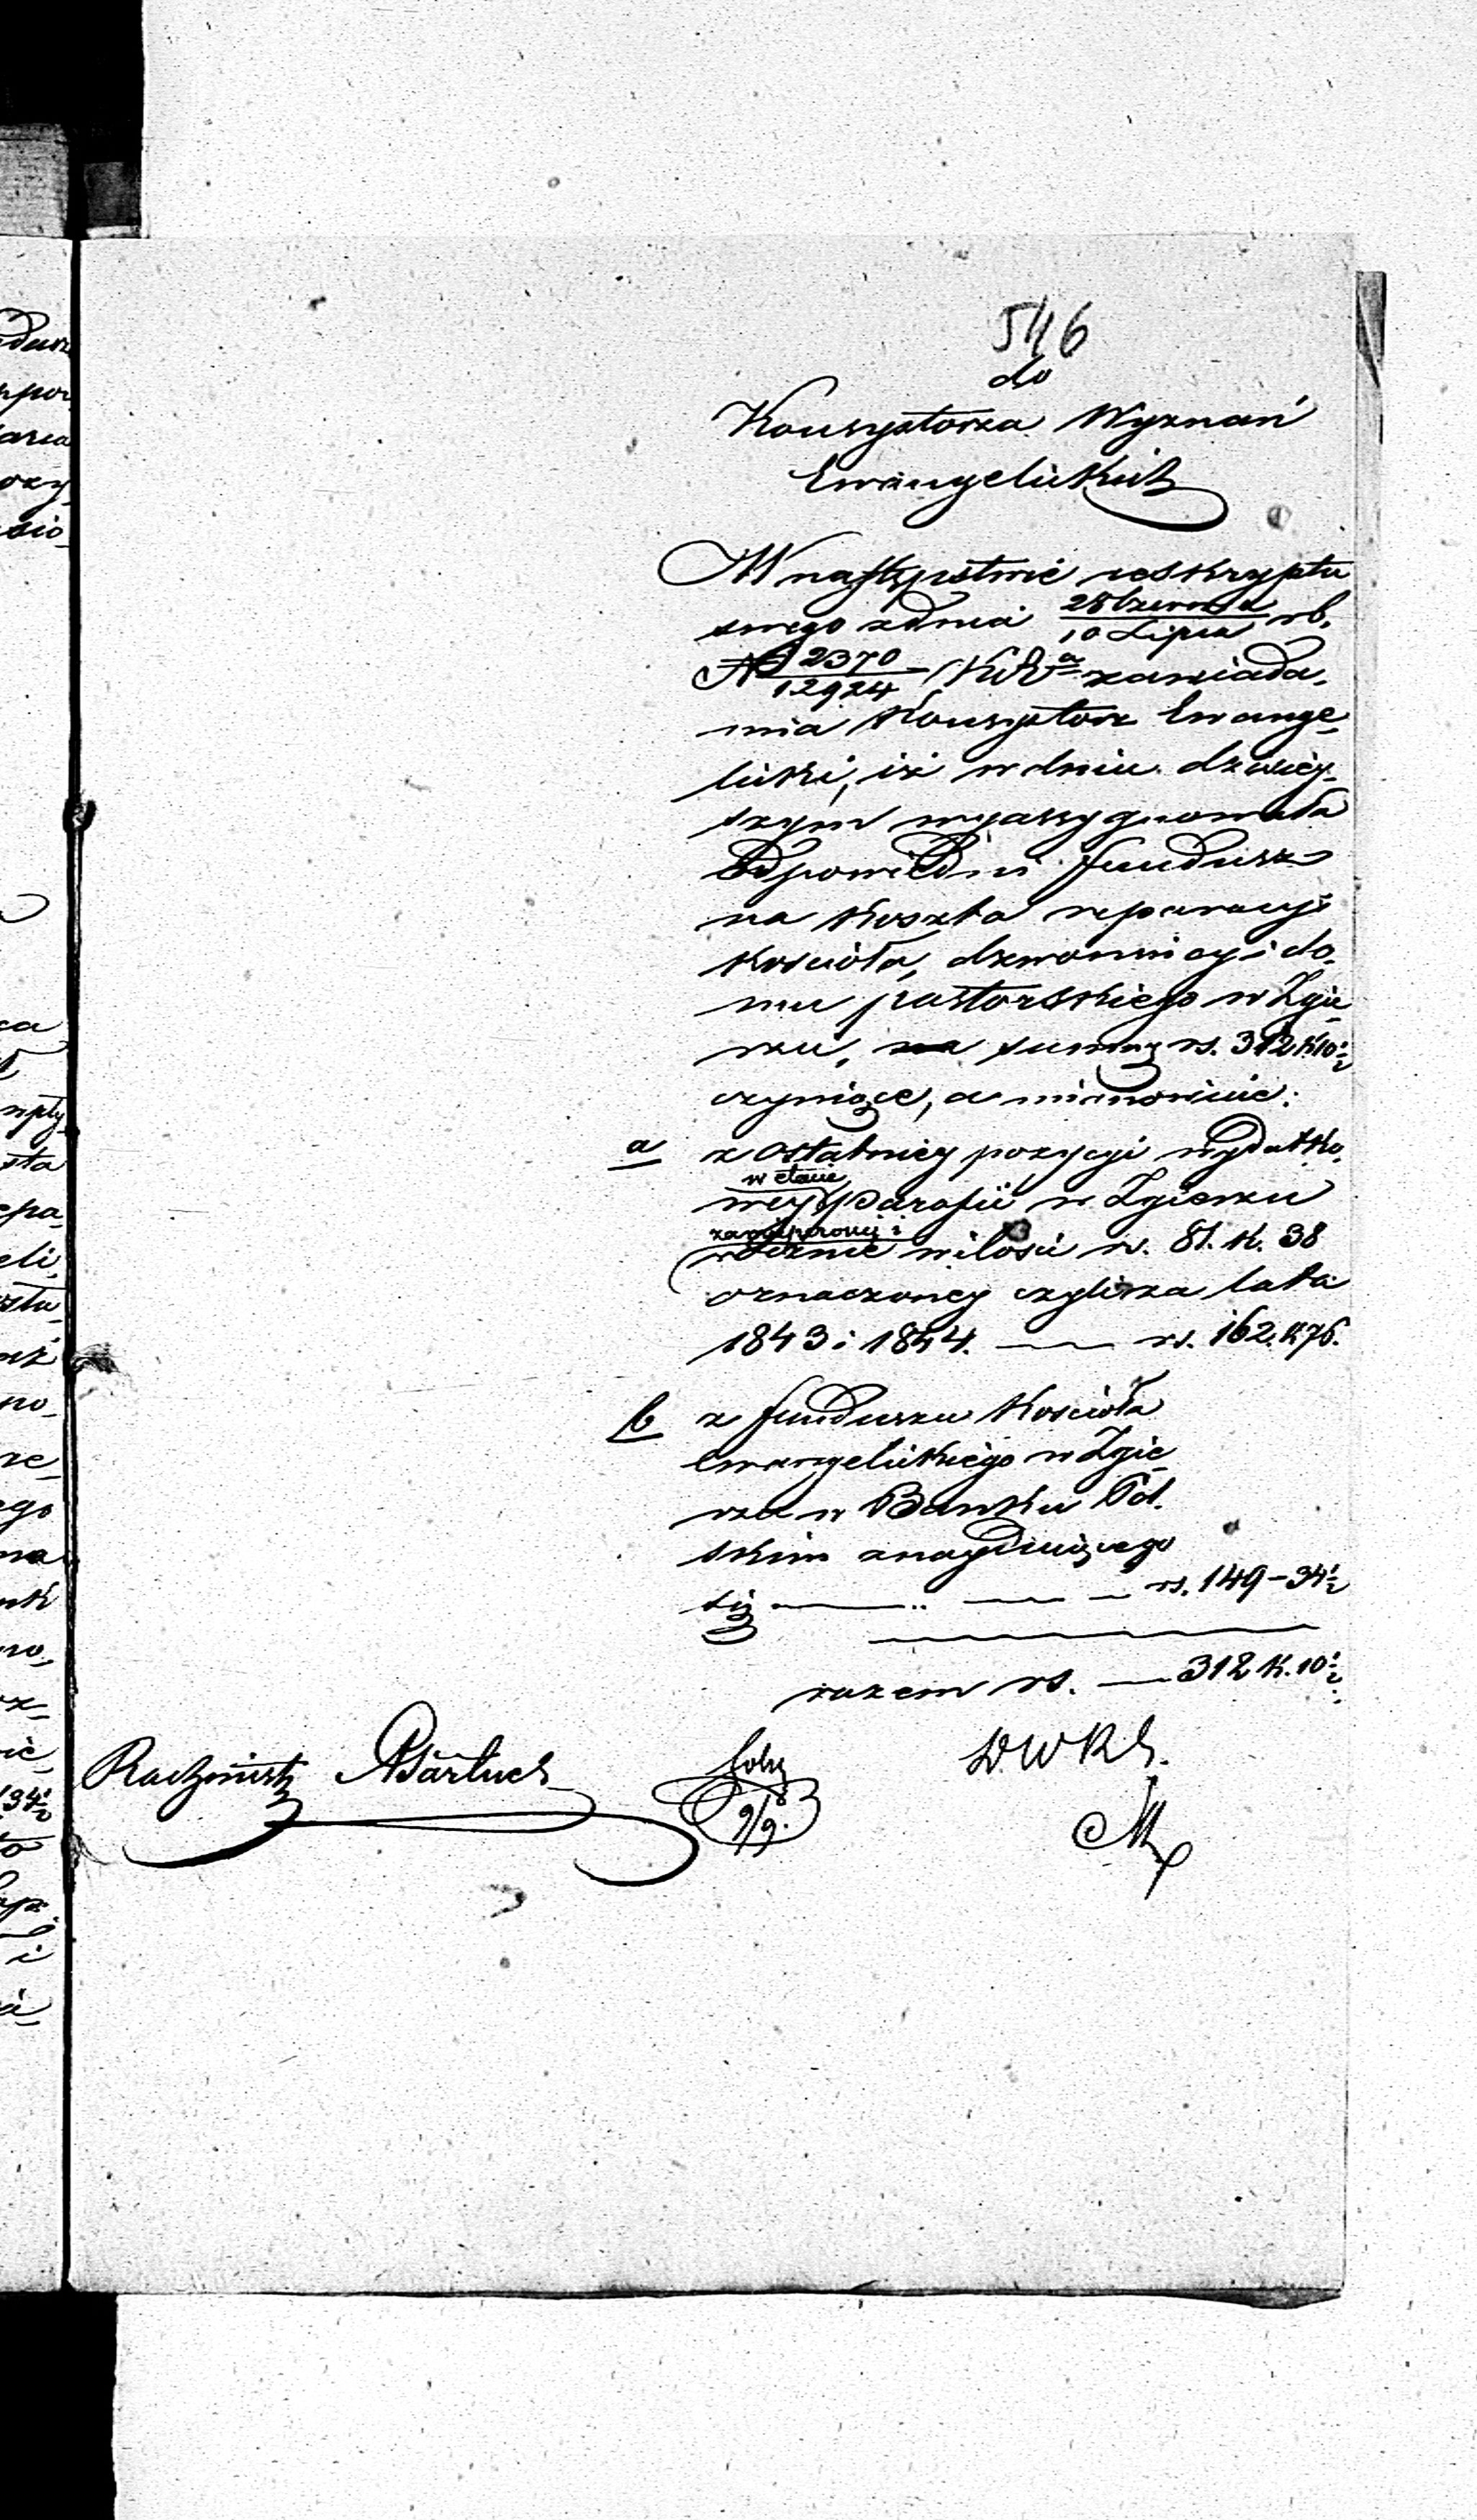 546
do
Konsystorza Wyznań
Ewangelickich
W następstwie reskryptu
swego z dnia 28 Czerwca / 10 Lipca rb.
N 2370 / 12924 zawiada-
mia Konsystorz Ewange-
licki, iż w dniu dzisiey-
szym wyassygnowała
odpowiedni fundusz
na koszta reparacyi
kościoła, dzwonnicy i do-
mu pastorskiego w Zgie-
rzu, summę rs. 312 k 10½
czyniące, a mianowicie:
a z ostatniey pozycyi wydatko-
wey w etacie parafii w Zgierzu
rocznie w ilości rs. 81. k. 38
oznaczoney czyli za lata
1843 i 1844. — rs. 162. k 76.
b z funduszu Kościoła
Ewangelickiego w Zgie-
rzu w Banku Pol-
skim znayduiącego
się — — rs. 149 - 34½
razem rs. — 312 k. 10½
D W R S.
9/9.